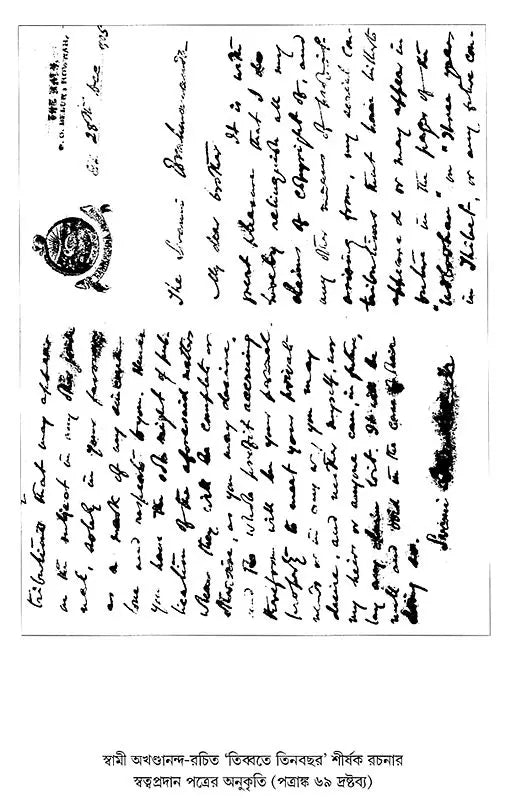 THE MATH,
P.O. BELUR: HOWRAH.
28th Dec
The Swami Brahmananda
My dear brother
It is with
great pleasure that I do
hereby relinquish all my
claims of Copyright of, and
any other means of profit
arising from, my serial con-
tributions that have hitherto
appeared or may appear in
future in the pages of the
"Udbodhan" on "Three years
in Thibet", or any future con-
2
tributions that may appear
on the subject in any
nal, solely in your favour
as a mark of my
love and respects to you. Hence
you have the sole right of pub-
lication of the aforesaid matter
when they will be complete or
otherwise, as you may desire,
and the whole profit accruing
therefrom will be your personal
property to meet your private
needs or in any way you may
desire, and neither myself, nor
my heirs or anyone can, in future,
lay any claim to it. It will be
null and void in the case of their
doing so.
Swami
স্বামী অখণ্ডানন্দ-রচিত ‘তিব্বতে তিনবছর’ শীর্ষক রচনার
স্বত্বপ্রদান পত্রের অনুকৃতি (পত্রাঙ্ক ৬৯ দ্রষ্টব্য)